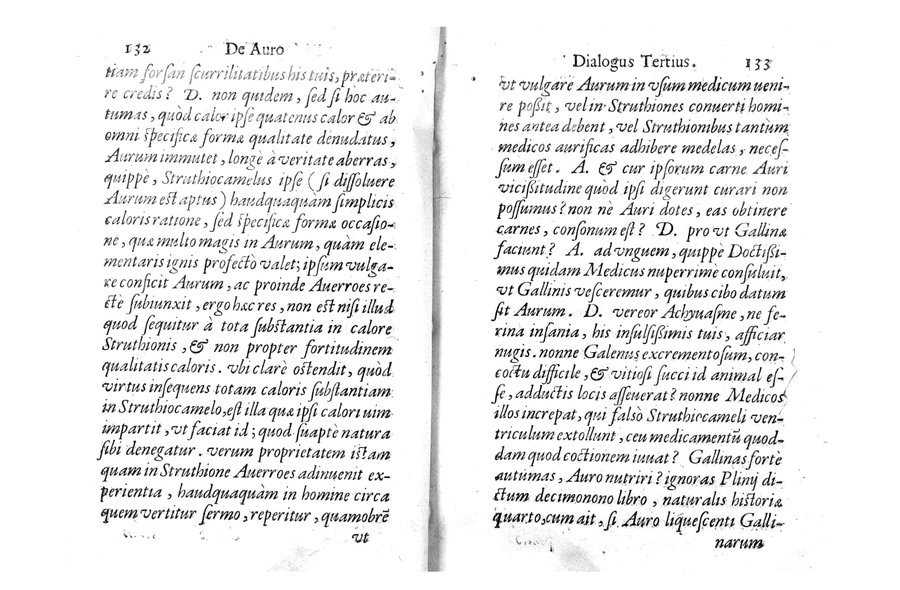 132 De Auro
tiam forsan scurrilitatibus his tuis, præteri-
re credis? D. non quidem, sed si hoc au-
tumas, quòd calor ipse quatenus calor & ab
omni specificæ formæ qualitate denudatus,
Aurum immutet, longè à veritate aberras,
quippè, Struthiocamelus ipse (si dissoluere
Aurum est aptus) haudquaquàm simplicis
caloris ratione, sed specificæ formæ occasio-
ne, quæ multo magis in Aurum, quàm ele-
mentaris ignis profectò valet; ipsum vulga-
re conficit Aurum, ac proinde Auerroes re-
ctè subiunxit, ergo hæc res, non est nisi illud
quod sequitur à tota substantia in calore
Struthionis, & non propter fortitudinem
qualitatis caloris. vbi clarè ostendit, quòd
virtus insequens totam caloris substantiam
in Struthiocamelo, est illa quæ ipsi calori uim
impartit, vt faciat id; quod suaptè natura
sibi denegatur. verum proprietatem istam
quam in Struthione Auerroes adinuenit ex-
perientia, haudquaquàm in homine circa
quem vertitur sermo, reperitur, quamobrẽ
vt
Dialogus Tertius. 133
vt vulgare Aurum in vsum medicum ueni-
re possit, vel in Struthiones conuerti homi-
nes antea debent, vel Struthionibus tantùm
medicos aurificas adhibere medelas, neces-
sum esset. A. & cur ipsorum carne Auri
vicissitudine quòd ipsi digerunt curari non
possumus? non nè Auri dotes, eas obtinere
carnes, consonum est? D. pro vt Gallinæ
faciunt? A. ad vnguem, quippè Doctissi-
mus quidam Medicus nuperrimè consuluit,
vt Gallinis vesceremur, quibus cibo datum
sit Aurum. D. vereor Achyuasme, ne fe-
rina insania, his insulsissimis tuis, afficiar
nugis. nonne Galenus excrementosum, con-
coctu difficile, & vitiosi succi id animal es-
se, adductis locis asseuerat? nonne Medicos
illos increpat, qui falsò Struthiocameli ven-
triculum extollunt, ceu medicamentũ quod-
dam quod coctionem iuuat? Gallinas fortè
autumas, Auro nutriri? ignoras Plinij di-
ctum decimonono libro, naturalis historiæ
quarto, cum ait, si Auro liquescenti Galli-
narum